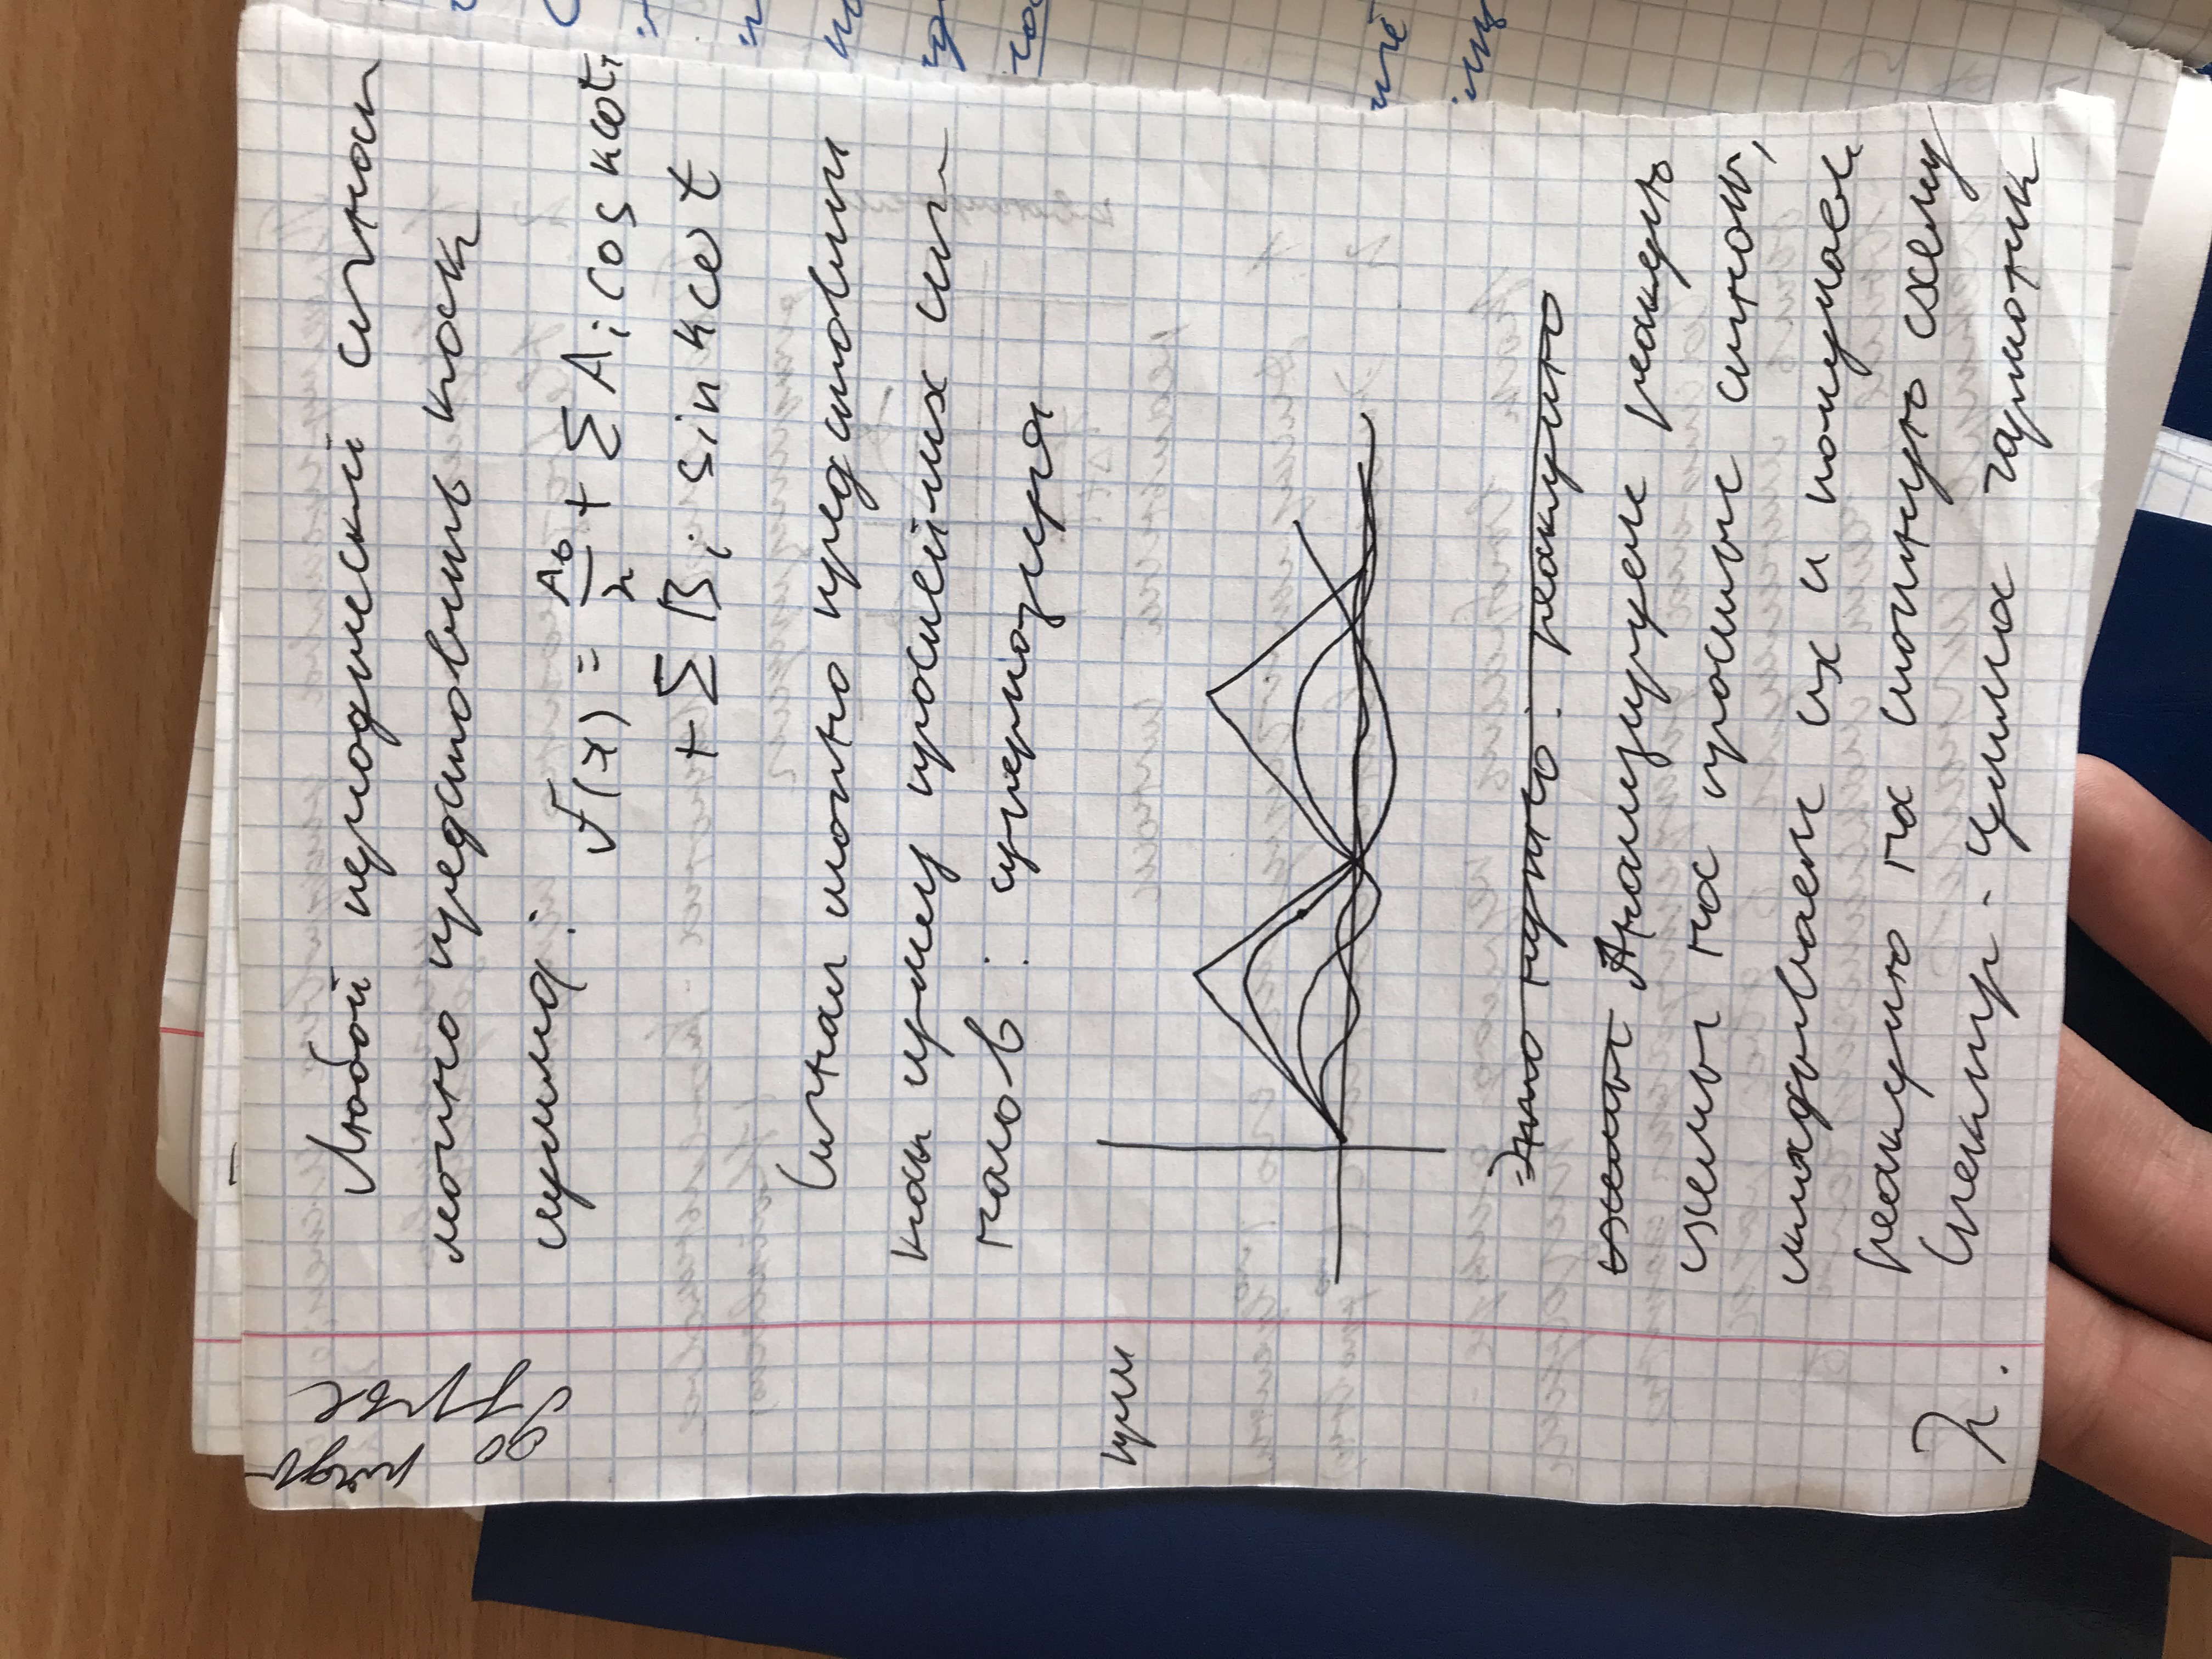 до ряда
Фурье
Любой периодический сигнал
можно представить как
сумма:
F(x) = A₀/2 + Σ Aᵢ cos kωt +
+ Σ Bᵢ sin kωt
Сигнал можно представить
как сумму простейших сиг-
налов: суперпозиция
Этого нужно: реакцию
схемы Анализируем реакцию
схемы на простые сигналы,
складываем их и получаем
реакцию на сложную схему
2. Спектр - сумма гармоник